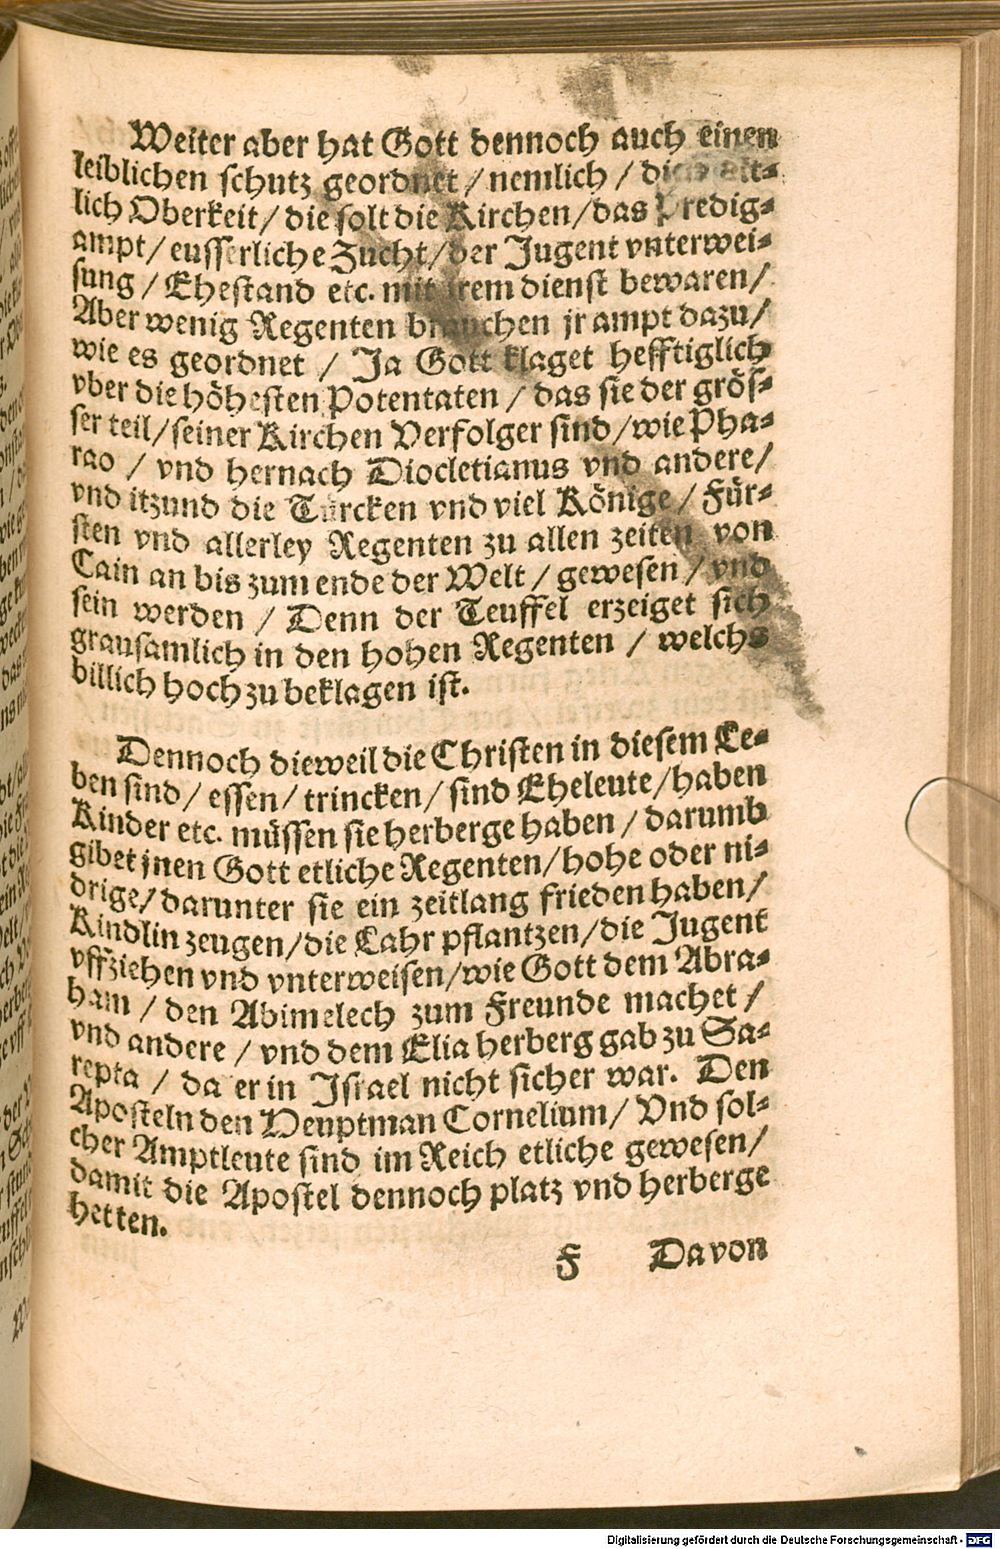 Weiter aber hat Gott dennoch auch einen
leiblichen schutz geordnet / nemlich / die welt-
lich Oberkeit / die solt die Kirchen / das Predig-
ampt / eusserliche Zucht / der Jugent vnterwei-
sung / Ehestand etc. mit irem dienst bewaren /
Aber wenig Regenten brauchen jr ampt dazu /
wie es geordnet / Ja Gott klaget hefftiglich
vber die höhesten Potentaten / das sie der grös-
ser teil / seiner Kirchen Verfolger sind / wie Pha-
rao / vnd hernach Diocletianus vnd andere /
vnd itzund die Türcken vnd viel Könige / Für-
sten vnd allerley Regenten zu allen zeiten von
Cain an bis zum ende der Welt / gewesen / vnd
sein werden / Denn der Teuffel erzeiget sich
grausamlich in den hohen Regenten / welchs
billich hoch zu beklagen ist.
Dennoch dieweil die Christen in diesem Le-
ben sind / essen / trincken / sind Eheleute / haben
Kinder etc. müssen sie herberge haben / darumb
gibet jnen Gott etliche Regenten / hohe oder ni-
drige / darunter sie ein zeitlang frieden haben /
Kindlin zeugen / die Lahr pflantzen / die Jugent
vffziehen vnd vnterweisen / wie Gott dem Abra-
ham / den Abimelech zum Freunde machet /
vnd andere / vnd dem Elia herberg gab zu Sa-
repta / da er in Israel nicht sicher war. Den
Aposteln den Heuptman Cornelium / Vnd sol-
cher Amptleute sind im Reich etliche gewesen /
damit die Apostel dennoch platz vnd herberge
hetten.
F Davon
Digitalisierung gefördert durch die Deutsche Forschungsgemeinschaft - DFG